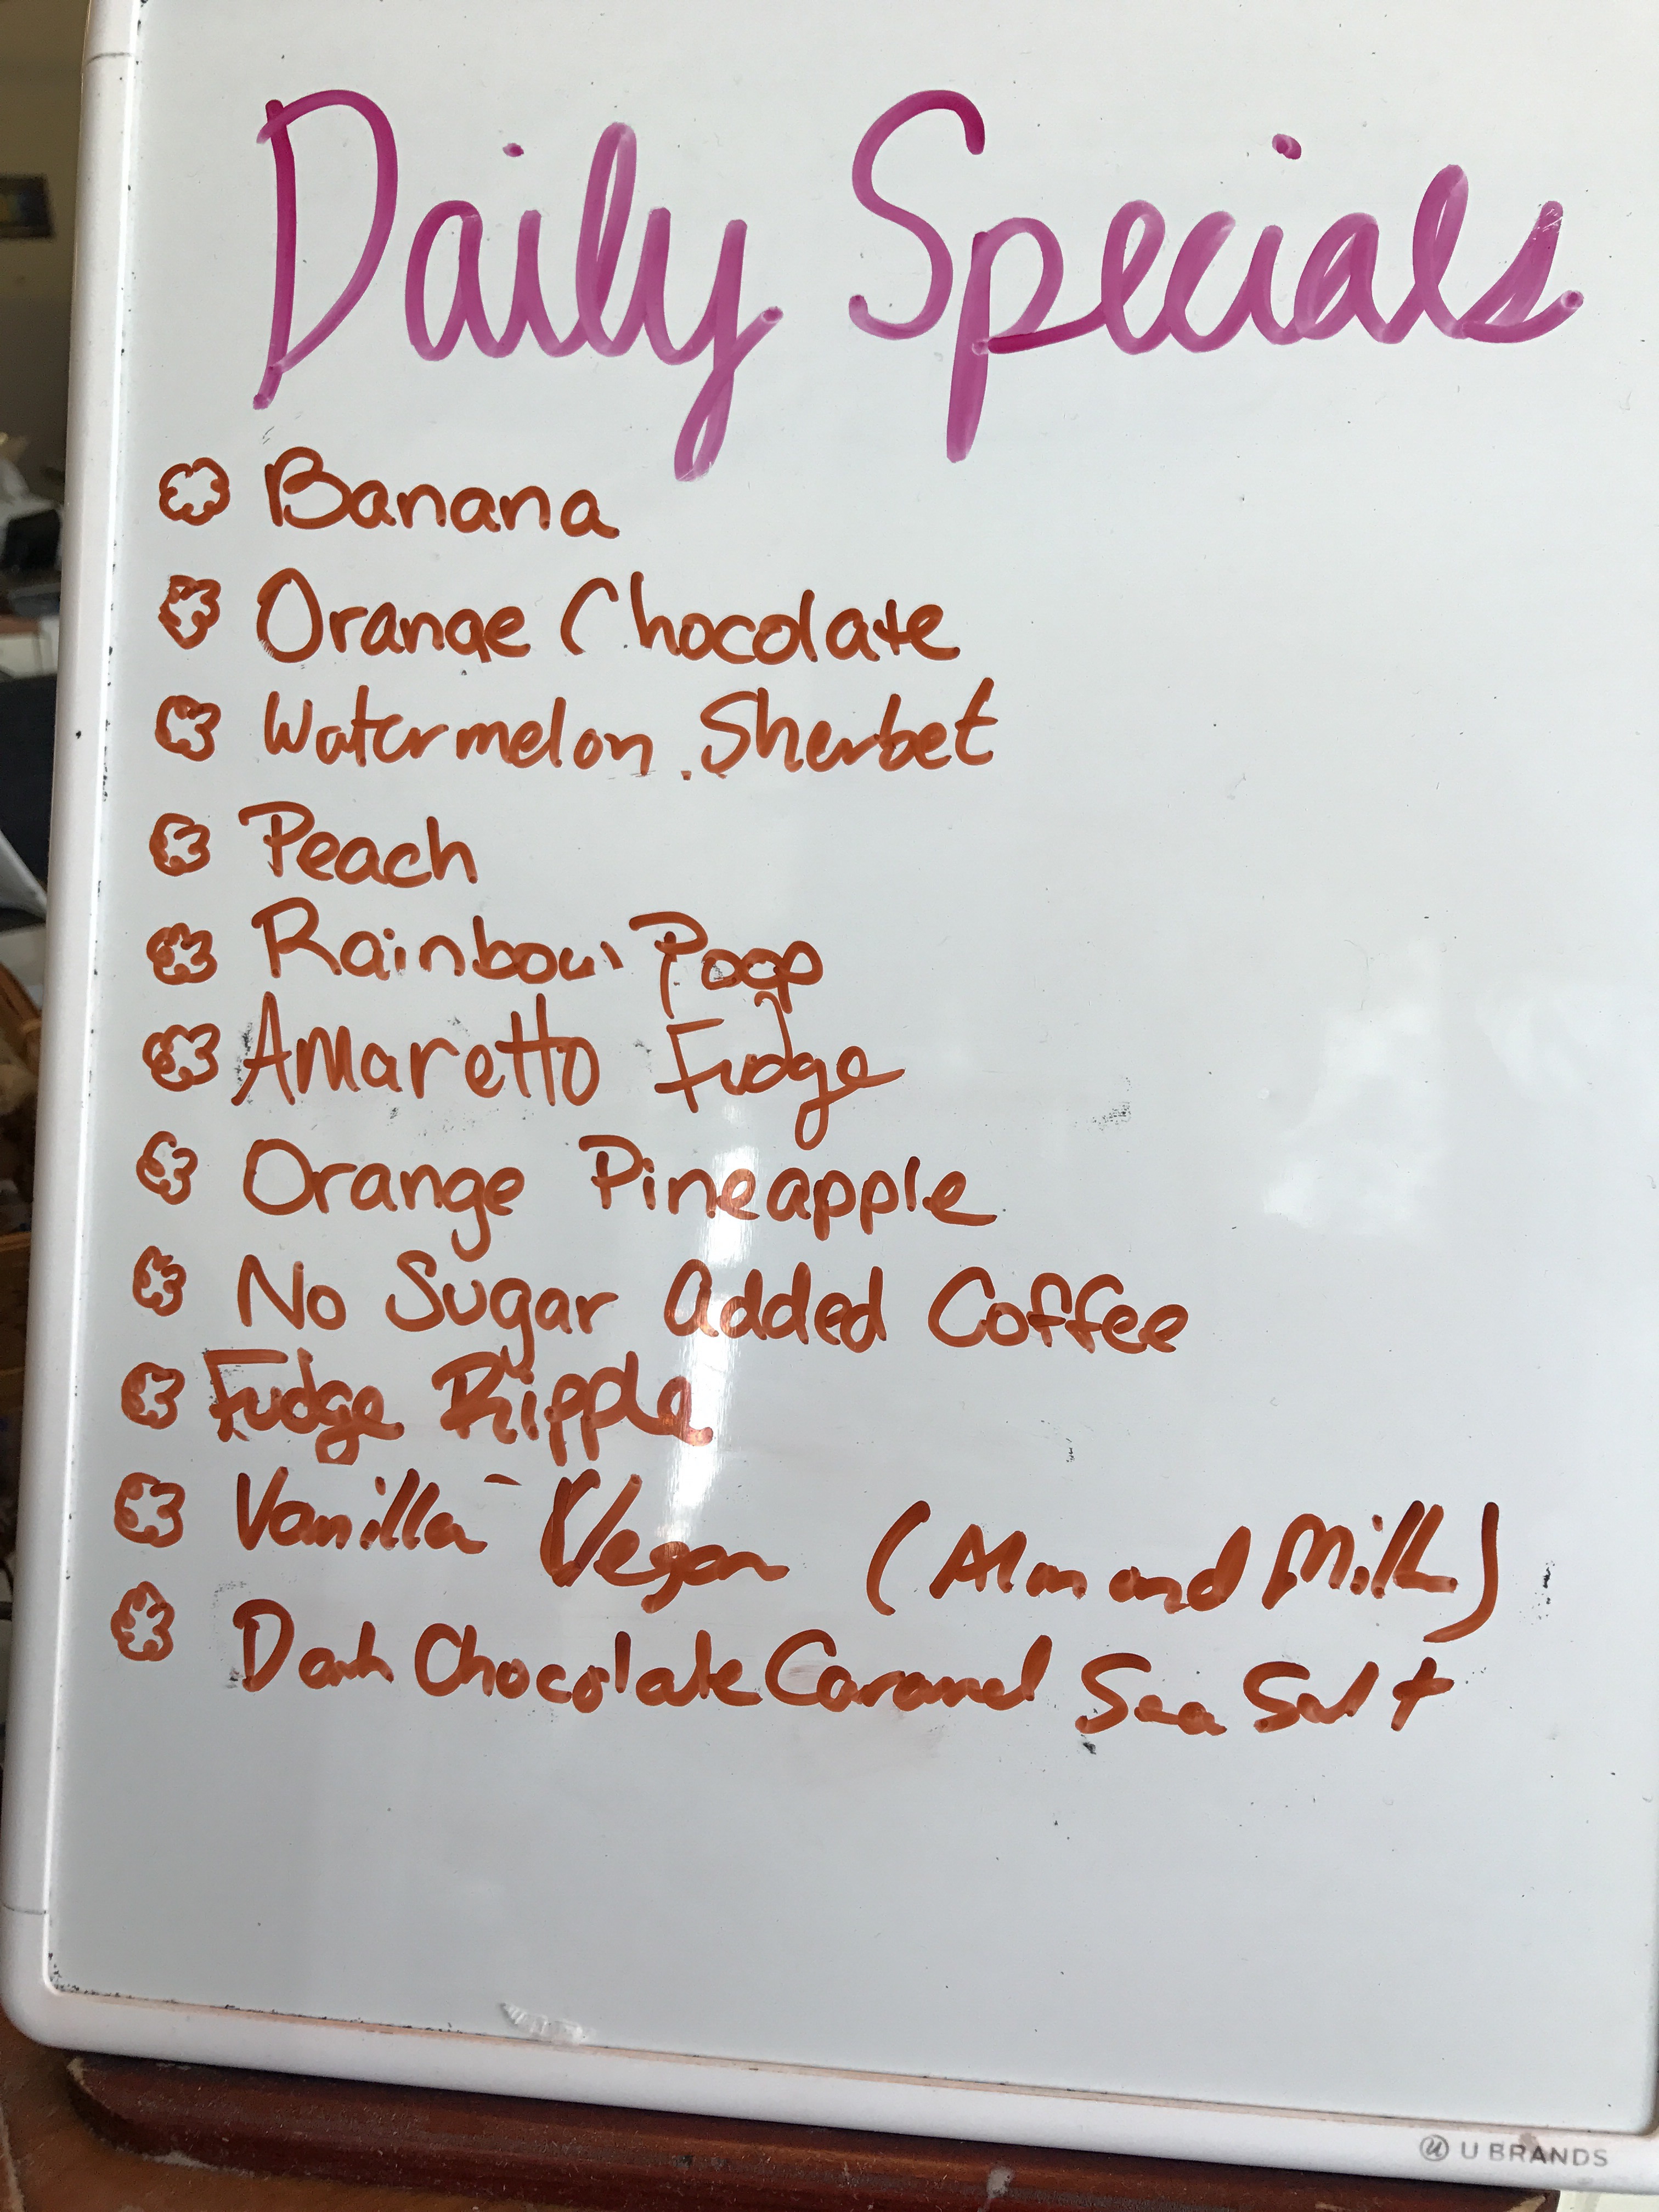 Daily Specials
Banana
Orange Chocolate
Watermelon Sherbet
Peach
Rainbow Poop
Amaretto Fudge
Orange Pineapple
No Sugar added Coffee
Fudge Ripple
Vanilla - Vegan (Almond Milk)
Dark Chocolate Caramel Sea Salt
U BRANDS